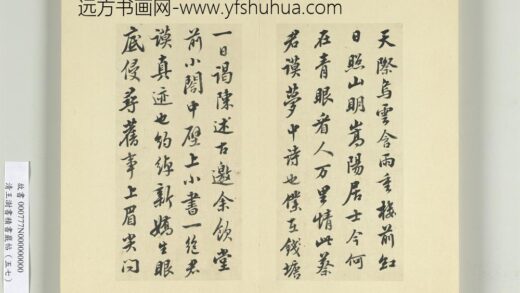 远方书画网-www.yfshuhua.com
天際烏雲含雨重樓前紅
日照山明嵩陽居士今何
在青眼看人萬里情此蔡
君謨夢中詩也僕在錢塘
一日謁陳述古邀余飲堂
前小閣中壁上小書一絕君
謨真迹也約綽新嬌生眼
底侵尋舊事上眉尖問
故書 000777N000000000
清王澍書積書巖帖（五七）